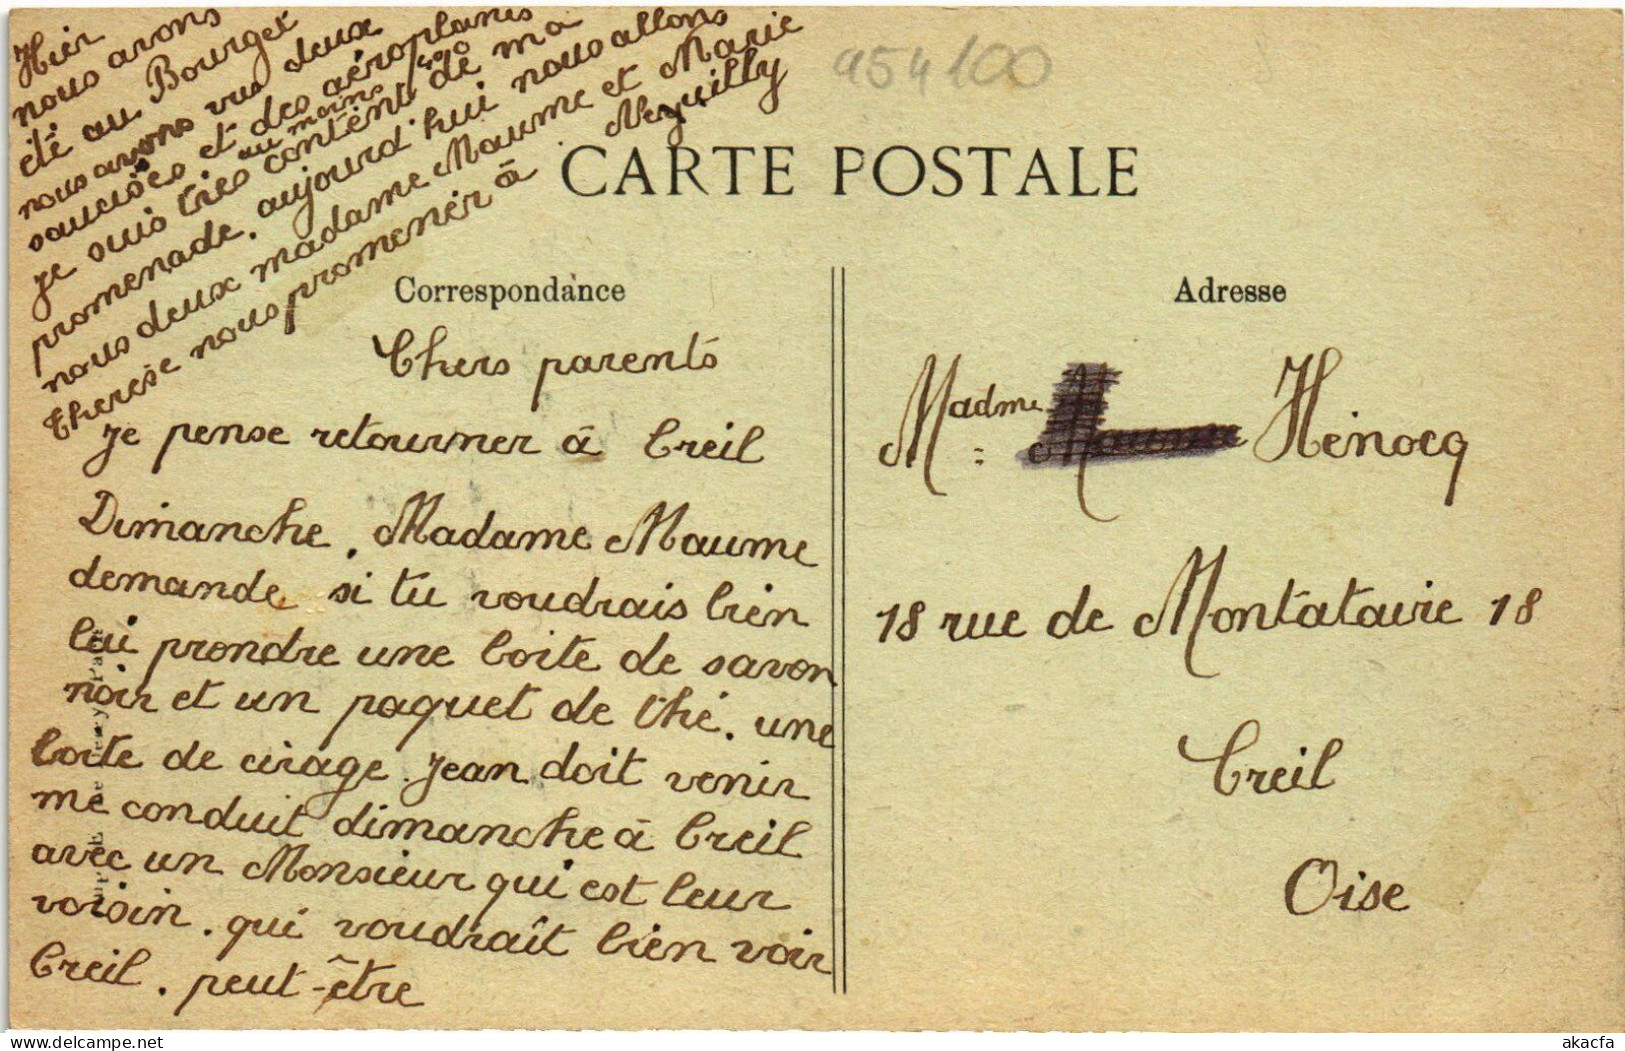 Hier
nous avons
été au Bourget
nous avons vus deux
saucises et des aéroplanes
au moins 400
je suis très content de ma
promenade. aujourd'hui nous allons
nous deux madame Maume et Marie
therese nous promener à Neyuilly
954100
CARTE POSTALE
Correspondance
Chers parents
Je pense retourner à Creil
Dimanche. Madame Maume
demande si tu voudrais bien
lui prendre une boite de savon
noir et un paquet de thé. une
boite de cirage. Jean doit venir
me conduit dimanche à Creil
avec un Monsieur qui est leur
voisin. qui voudraît bien voir
Creil. peut-être
Adresse
Madme Hénocq
18 rue de Montataire 18
Creil
Oise
akacfa
delcampe.net